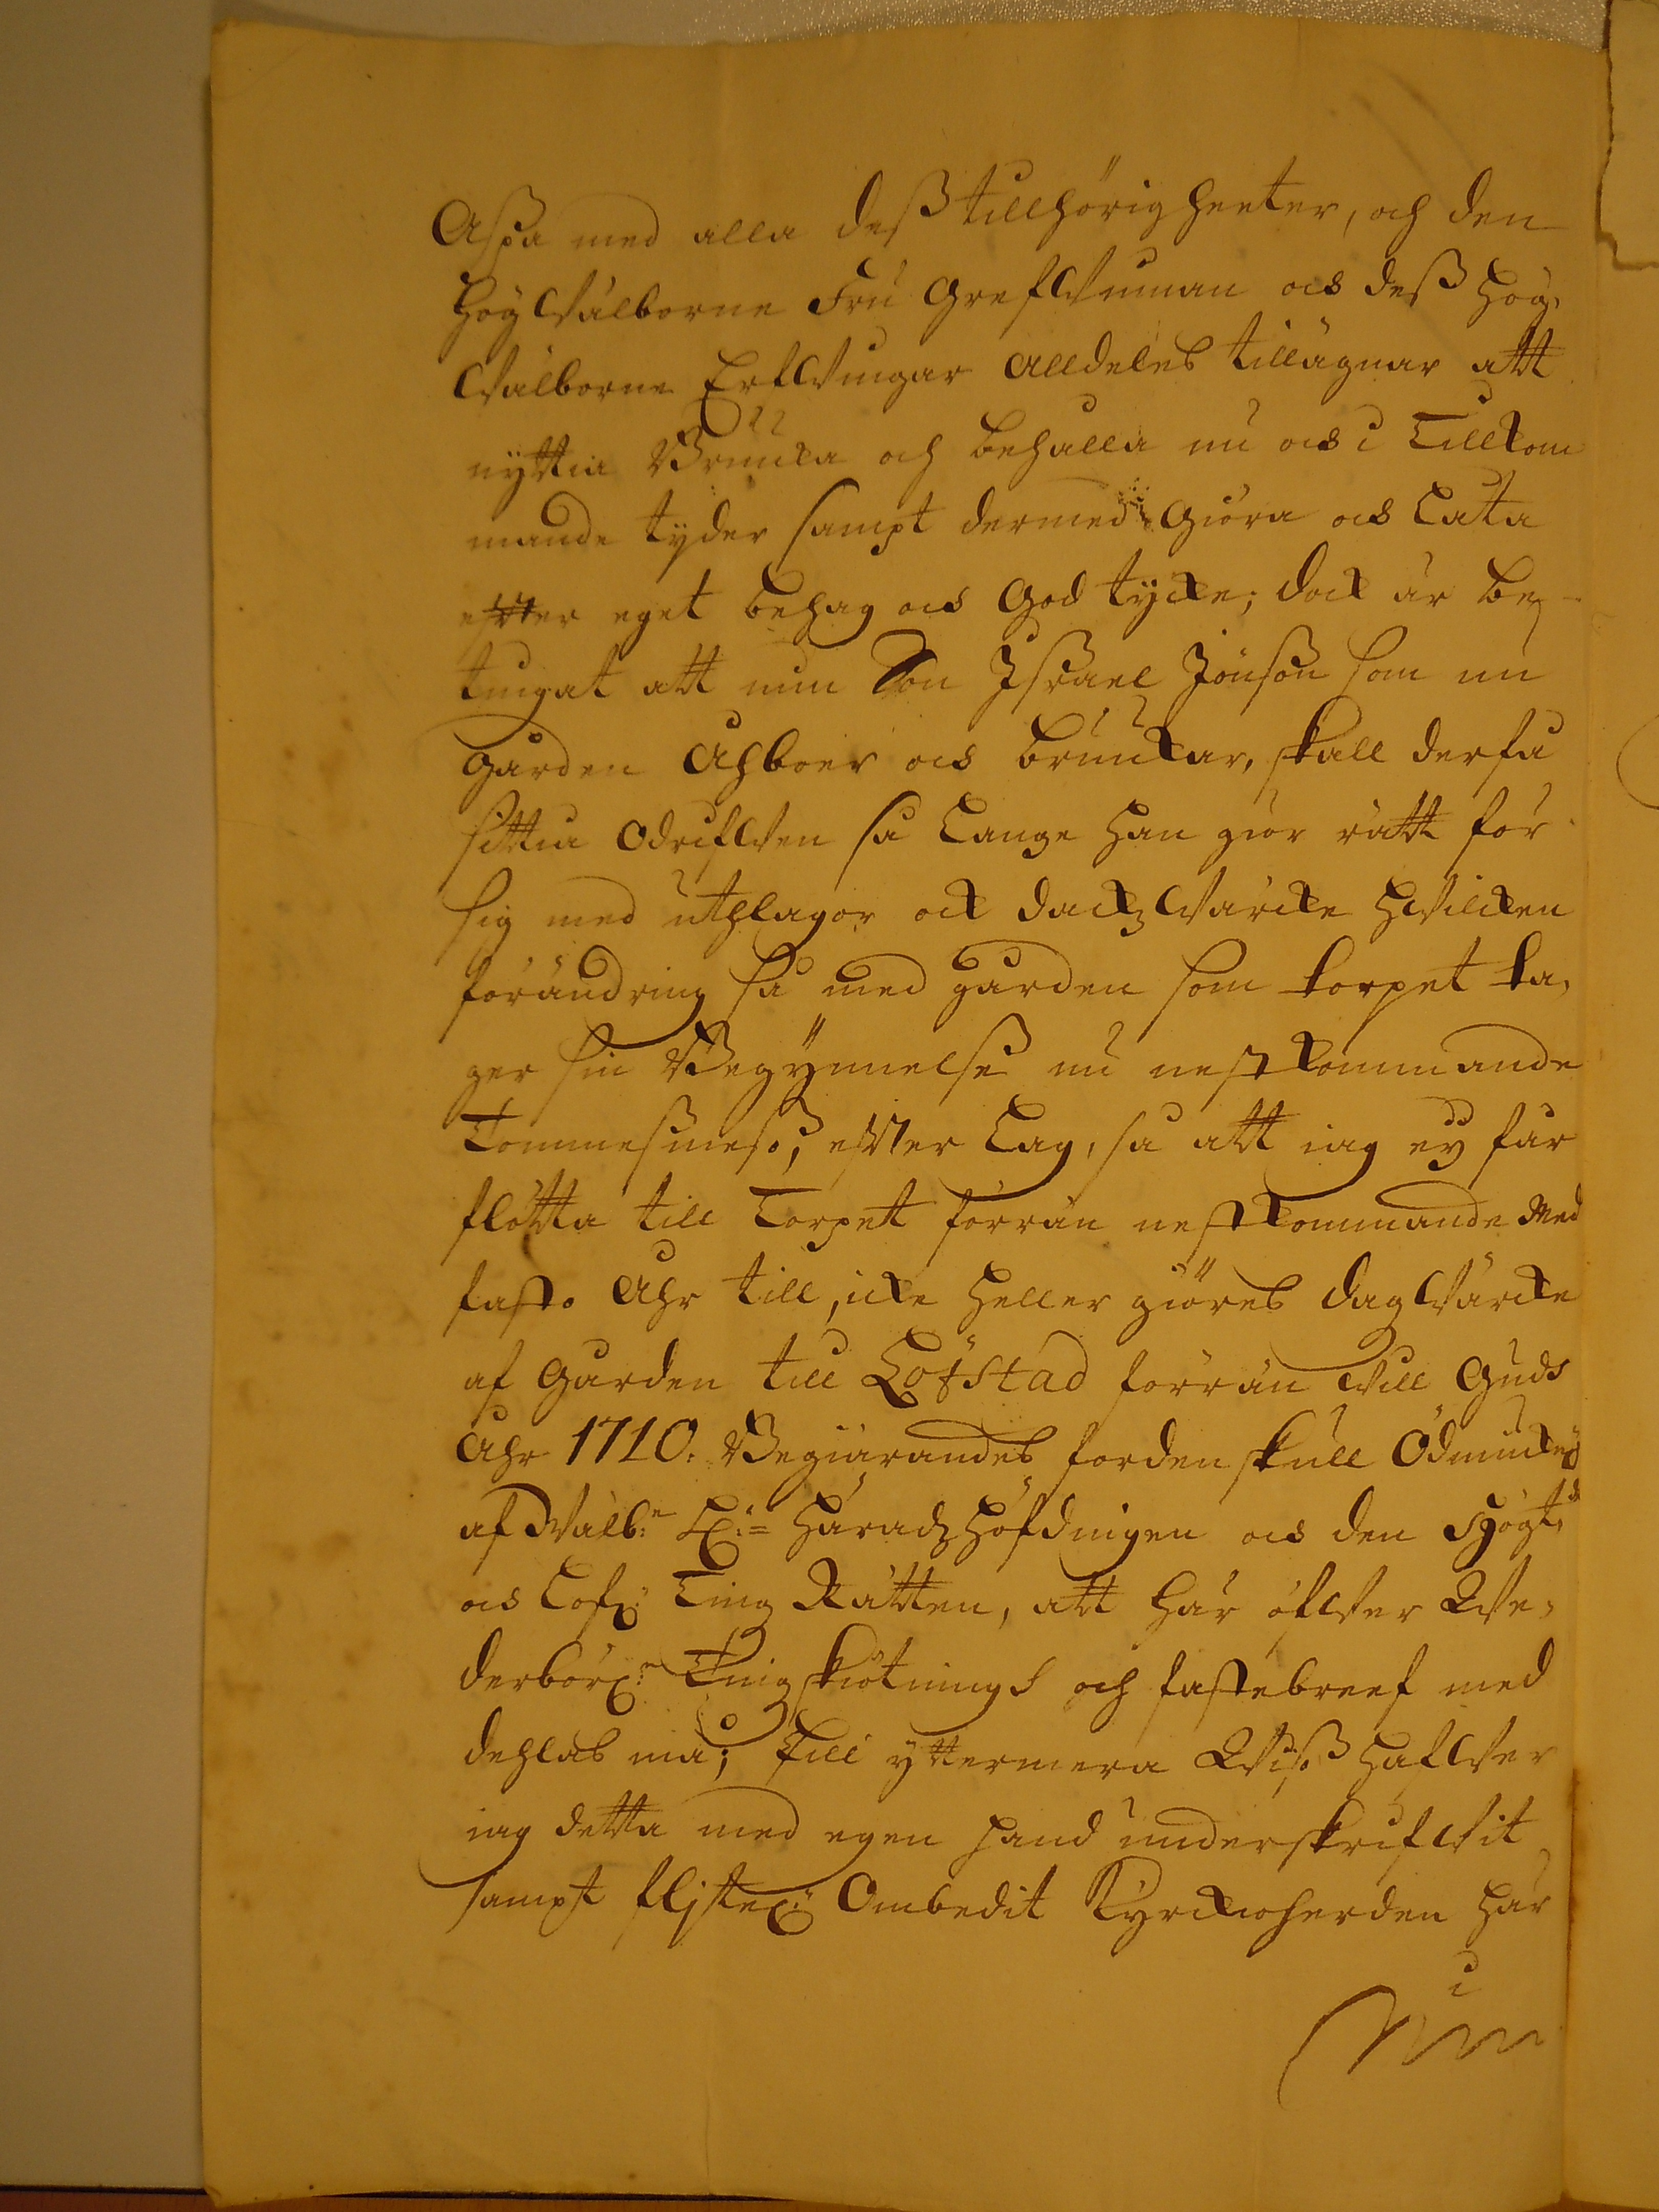 Aspa med alla deß tillhörigheeter, och den
HögWälborne Fru GrefWinnan och deß Hög,
Wälborne ErfWingar alldeles tillägnar att
nyttia Bruuka och behålla nu och i Tillkom
mande tyder sampt dermed giöra och Låta
effter eget behag och Godtycke; dock är be-
tingat att min Son Israel Jönson som nu
gården Åhboer och bruukar, skall der få
sittia OdrifWen så Länge han giör rätt för
sig med uthlagor och dackzWärcke hWilcken
förändring så med gården som torpet ta,
ger sin Begÿnnelse nu nestkommande
Tommesmeso, effter Lag, så att iag eÿ får
flötta till Torpet förrän nestkommande Med
fasto Åhr till, icke heller giöres dagWärcke
af gården till Löfstad förrän Will Guds
Åhr 1710. Begiärandes fordenskull Ödmiuke¯
af Wälb:ne H:r HäradzHöfdingen och den Högt,
och Lofl: Ting Rätten, att här öfWer We,
derbörl:n Tingskiötnings och fastebreef med
dehlas må; Till yttermera Wiso hafWer
iag detta med egen hand underskrifWit
sampt flijtel: Ombedit Kyrckioherden här
i